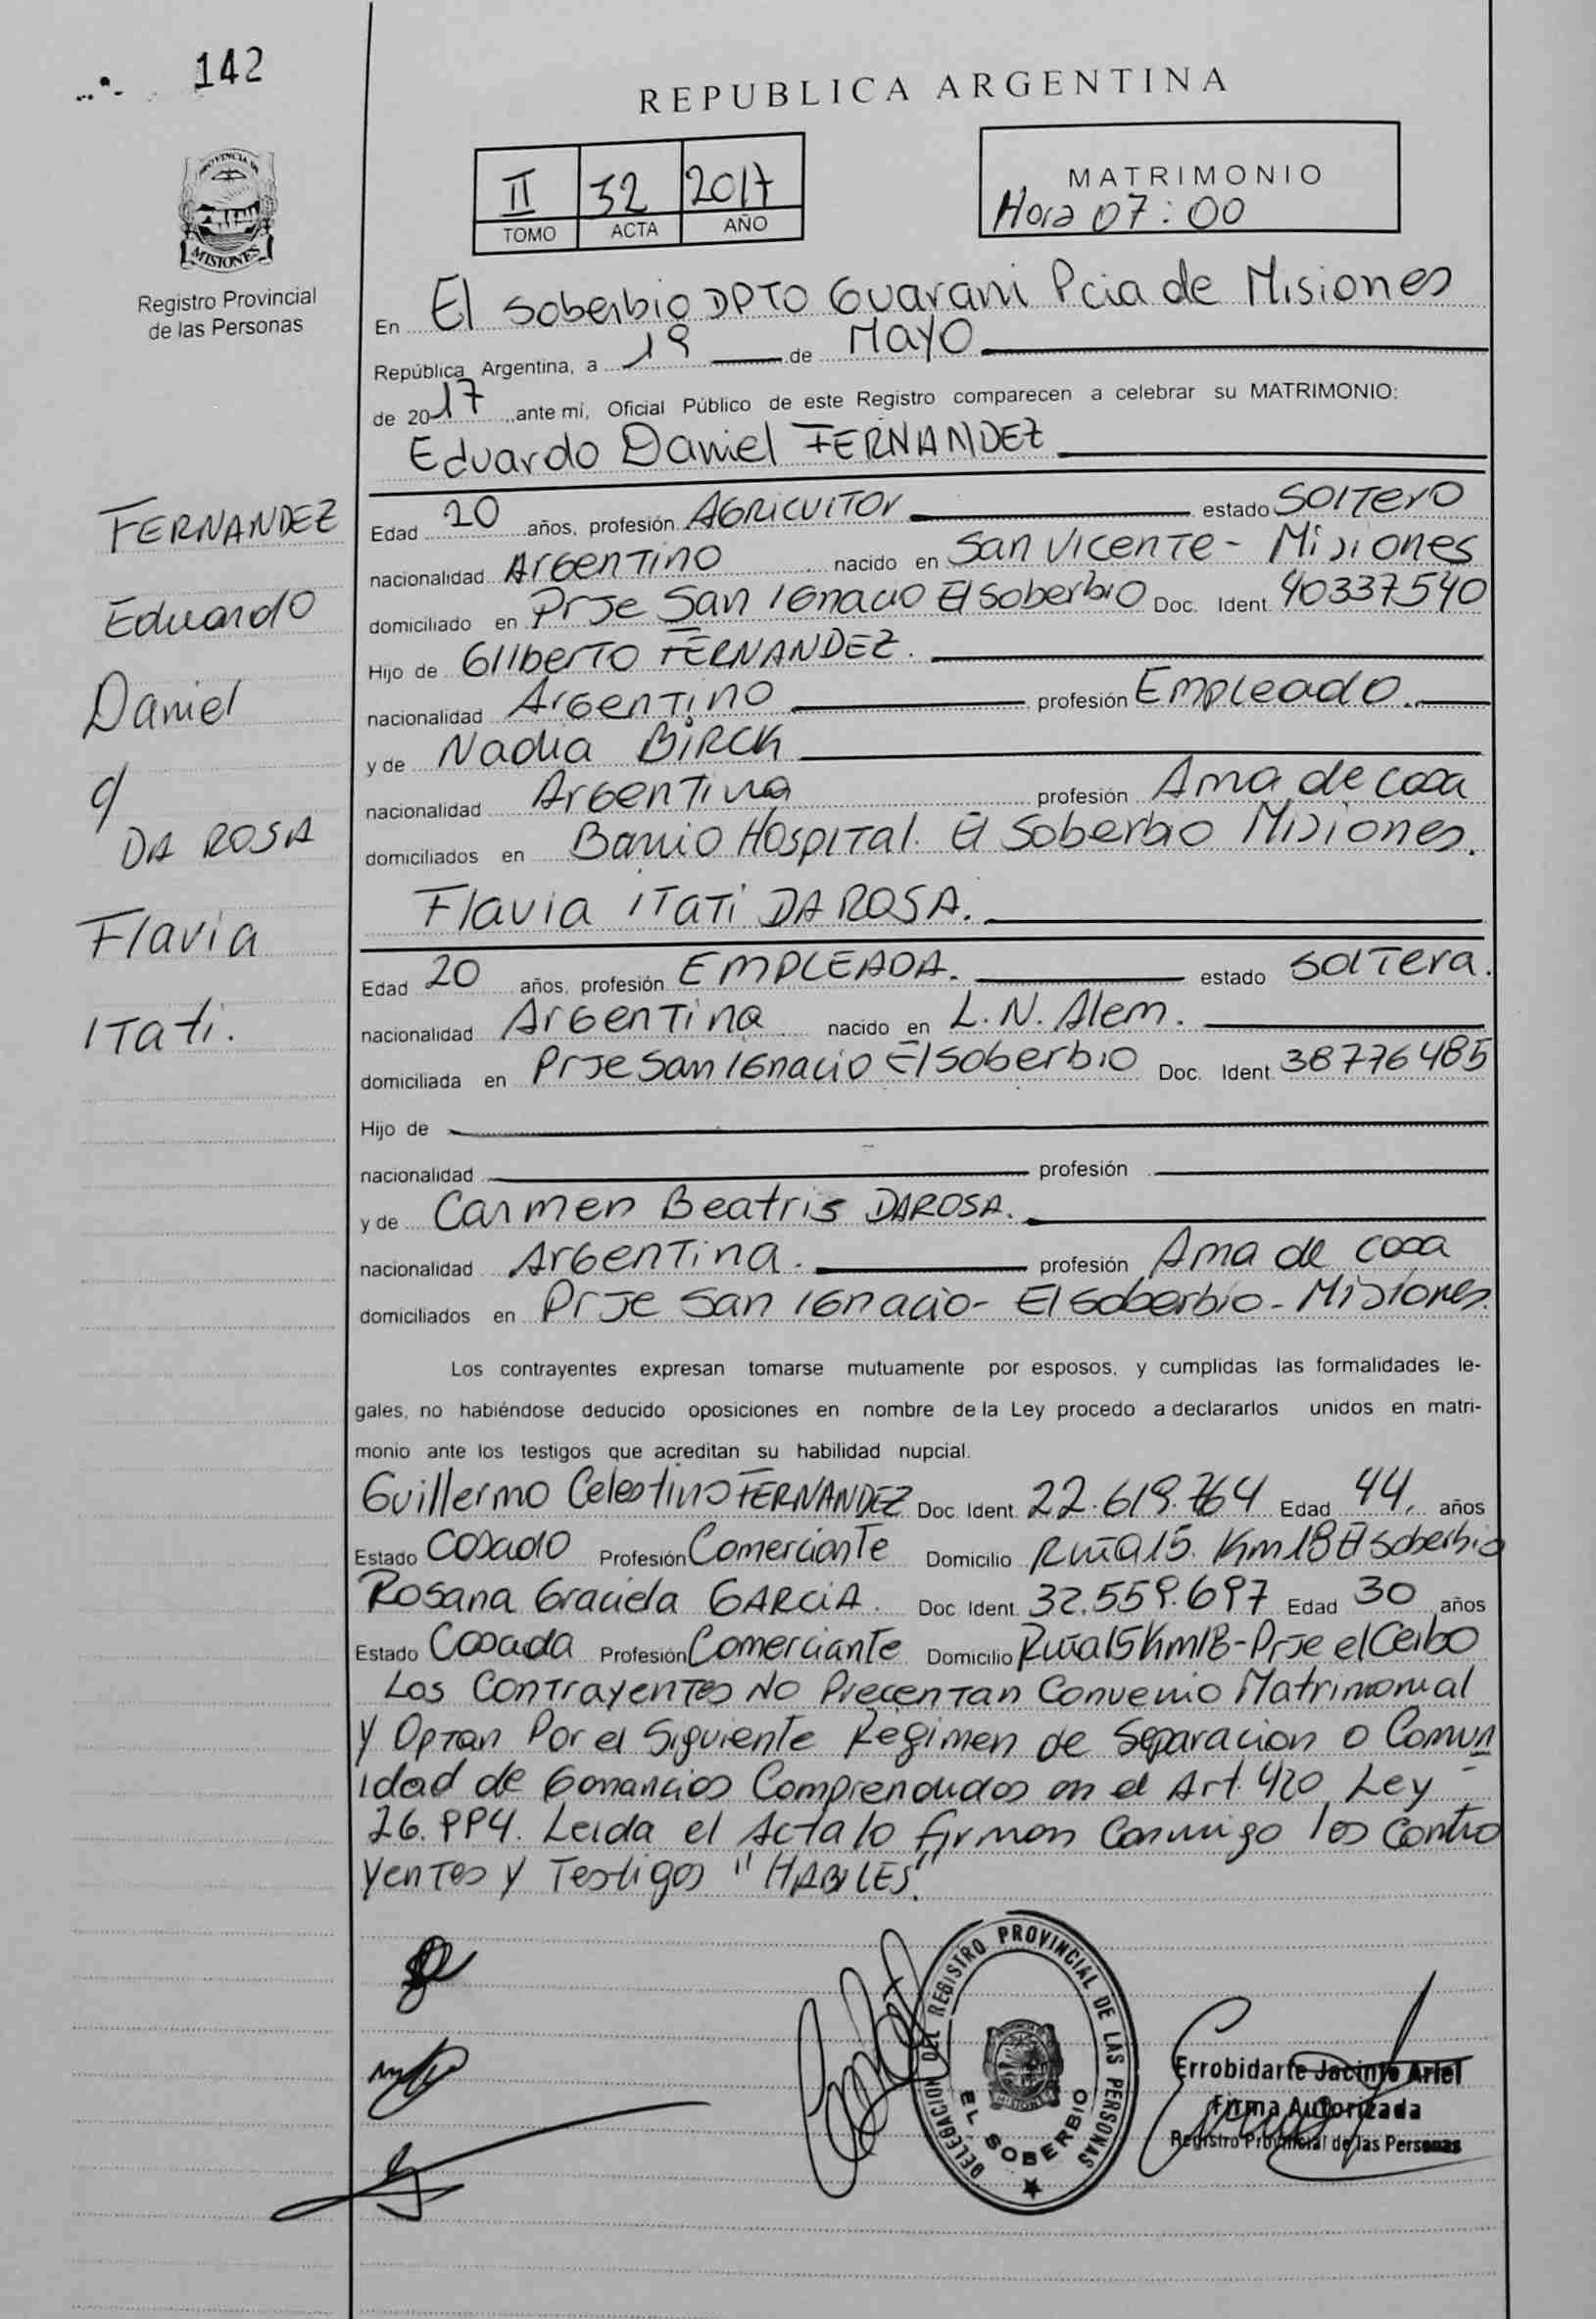 142
REPUBLICA ARGENTINA
PROVINCIA DE
MISIONES
Registro Provincial
de las Personas
II 32 2017
TOMO ACTA AÑO
MATRIMONIO
Hora 07:00
En El Soberbio DPTO Guarani Pcia de Misiones
República Argentina, a 19 de MAYO
de 2017 ante mí, Oficial Público de este Registro comparecen a celebrar su MATRIMONIO:
Eduardo Daniel FERNANDEZ
FERNANDEZ
Eduardo
Daniel
c/
DA ROSA
Flavia
ITati.
Edad 20 años, profesión AGRICUlTOr estado SOlTerO
nacionalidad ArGenTinO nacido en San VicenTe - Misiones
domiciliado en PrJe San IGnacio El Soberbio Doc. Ident. 40337540
Hijo de GIlberTO FERNANDEZ.
nacionalidad ArGenTinO profesión Empleado.
y de Nadia BIRCK
nacionalidad ArGenTina profesión Ama de casa
domiciliados en Barrio HospITal. El Soberbio Misiones.
Flavia ITaTi DA ROSA.
Edad 20 años, profesión EMPLEADA. estado SolTera.
nacionalidad ArGenTina nacido en L.N. Alem.
domiciliada en PrJe San IGnacio El Soberbio Doc. Ident. 38776485
Hijo de
nacionalidad profesión
y de Carmen Beatris DAROSA.
nacionalidad ArGenTina. profesión Ama de casa
domiciliados en PrJe San IGnacio - El Soberbio - Misiones.
Los contrayentes expresan tomarse mutuamente por esposos, y cumplidas las formalidades le-
gales, no habiéndose deducido oposiciones en nombre de la Ley procedo a declararlos unidos en matri-
monio ante los testigos que acreditan su habilidad nupcial.
Guillermo Celestino FERNANDEZ Doc. Ident. 22.619.764 Edad 44, años
Estado Casado Profesión ComercianTe Domicilio Ruta 15. Km 18 El Soberbio
Rosana Graciela GARCIA. Doc. Ident. 32.559.697 Edad 30 años
Estado Casada Profesión ComercianTe Domicilio Ruta 15 Km 18 - PrJe el Ceibo
Los ConTrayenTes No PrecenTan Convenio Matrimonial
Y OpTan Por el SiguienTe Regimen de Separacion o Comun
idad de Ganancias Comprendidos en el Art. 420 Ley
26.994. Leida el Acta lo firman Conmigo los Contra
yenTes y Testigos "HABILES".
DELEGACION 170 REGISTRO PROVINCIAL DE LAS PERSONAS
EL SOBERBIO
MISIONES
Errobidarte Jacinto Ariel
Firma Autorizada
Registro Provincial de las Personas